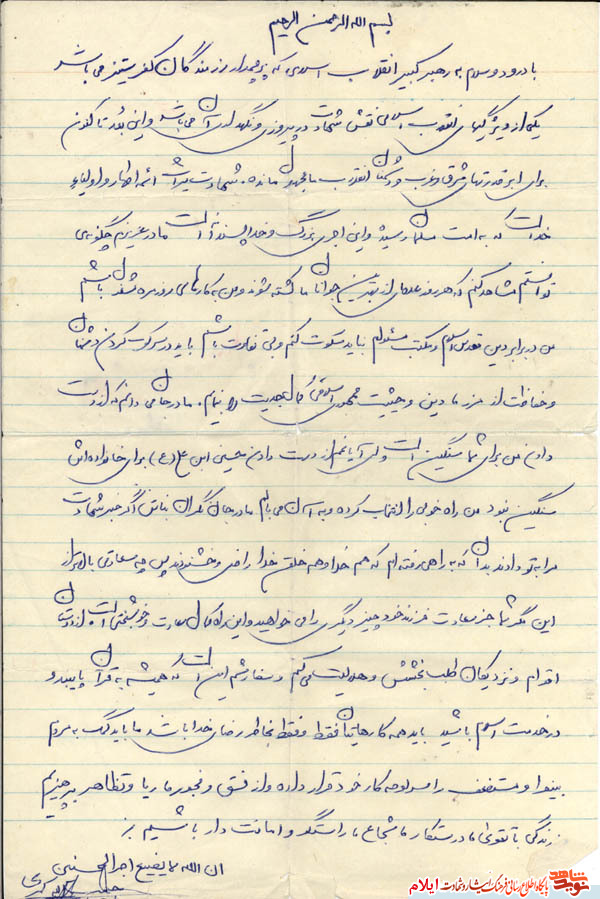 بسم الله الرحمن الرحیم
با درود و سلام به رهبر کبیر انقلاب اسلامی که پرچمدار رزمندگان کفرستیز می باشد
یکی از ویژگیهای انقلاب اسلامی نقش شهادت در پیروزی و نگهداری آن می باشد و این بُعد تا کنون
برای ابرقدرتهای شرق و غرب و دشمنان انقلاب ما مجهول مانده. شهادت میراث ائمه اطهار و اولیاء
خداست که به امت مسلمان رسیده و این اجری بزرگ و خدا پسندانه است مادر عزیزم چگونه می
توانستم مشاهده کنم که هر روز عده ای از بهترین جوانان ما کشته شوند و من به کارهای روزمره مشغول باشم
من در برابر دین مقدس اسلام و مکتب مسئولم نباید سکوت کنم و بی تفاوت باشم باید در سرکوب کردن دشمنان
و حفاظت از مرز مادین و حیثیت جمهوری اسلامی کمال جدیت را بنمایم. مادر جان می دانم که از دست
دادن من برای شما سنگین است ولی آیا غم از دست دادن حسین ابن علی (ع) برای خانواده اش
سنگین نبود من راه خوبی را انتخاب کرده و به آن می بالم مادر جان نگران نباش اگر خبر شهادت
مرا به تو دادند بدان که به راهی رفته ام که هم خدا و هم خلق خدا راضی و خشنودند پس چه سعادتی بالاتر از
این مگر شما جز سعادت فرزند خود چیز دیگری را می خواهید و این راه کمال سعادت و خوشبختی است از دوستان
اقوام و نزدیکان طلب بخشش و حلالیت می کنم و سفارشم این است که همیشه به قرآن پایبند و
در خدمت اسلام باشید باید همه کارهایمان فقط و فقط بخاطر رضای خدا باشد ما باید کمک به مردم
بینوا و مستضعف را سرلوحه کار خود قرار داده و از فسق و فجور و ریا و تظاهر بپرهیزیم
زندگی با تقوی ما درستکار ما شجاع ما راستگو و امانت دار باشیم
ان الله لا یضیع اجر المحسنین
نوید شاهد
پایگاه اطلاع رسانی فرهنگ ایثار و شهادت ایلام